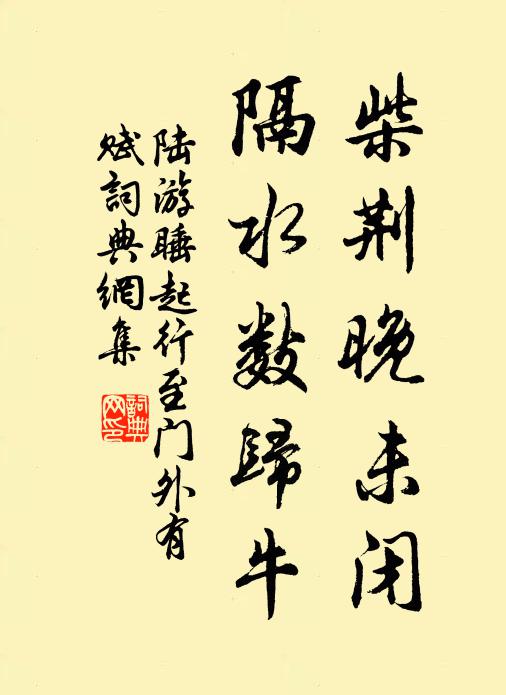 柴荆晚未闭
隔水数歸牛
陆游睡起行至门外有
赋詞典網集
詞典网印